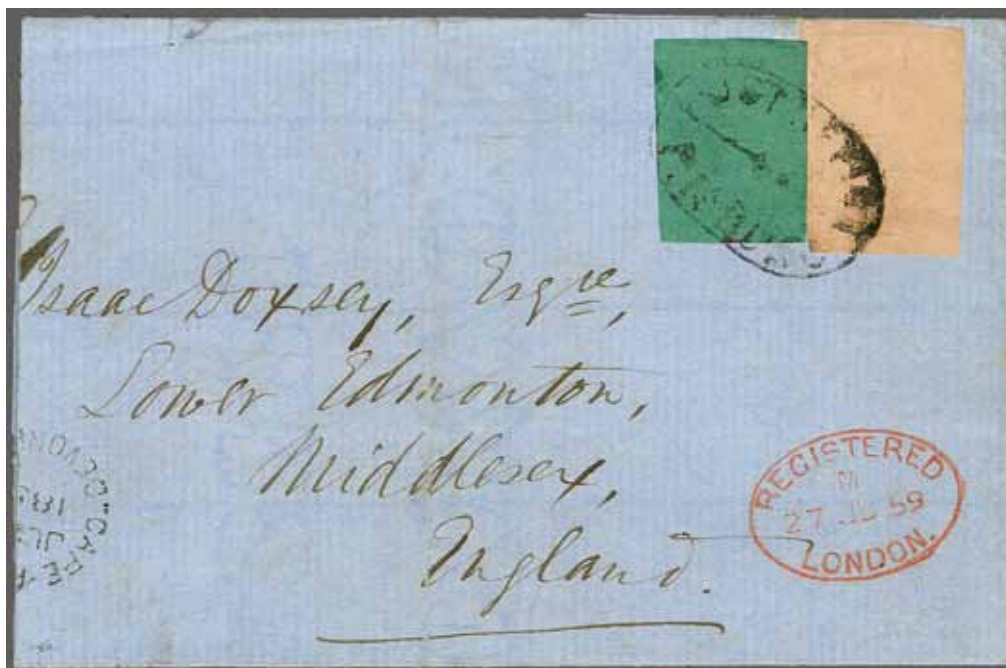 Isaac Doxsey, Esqre,
Lower Edmonton,
Middlesex,
England.
REGISTERED
27 59
LONDON.